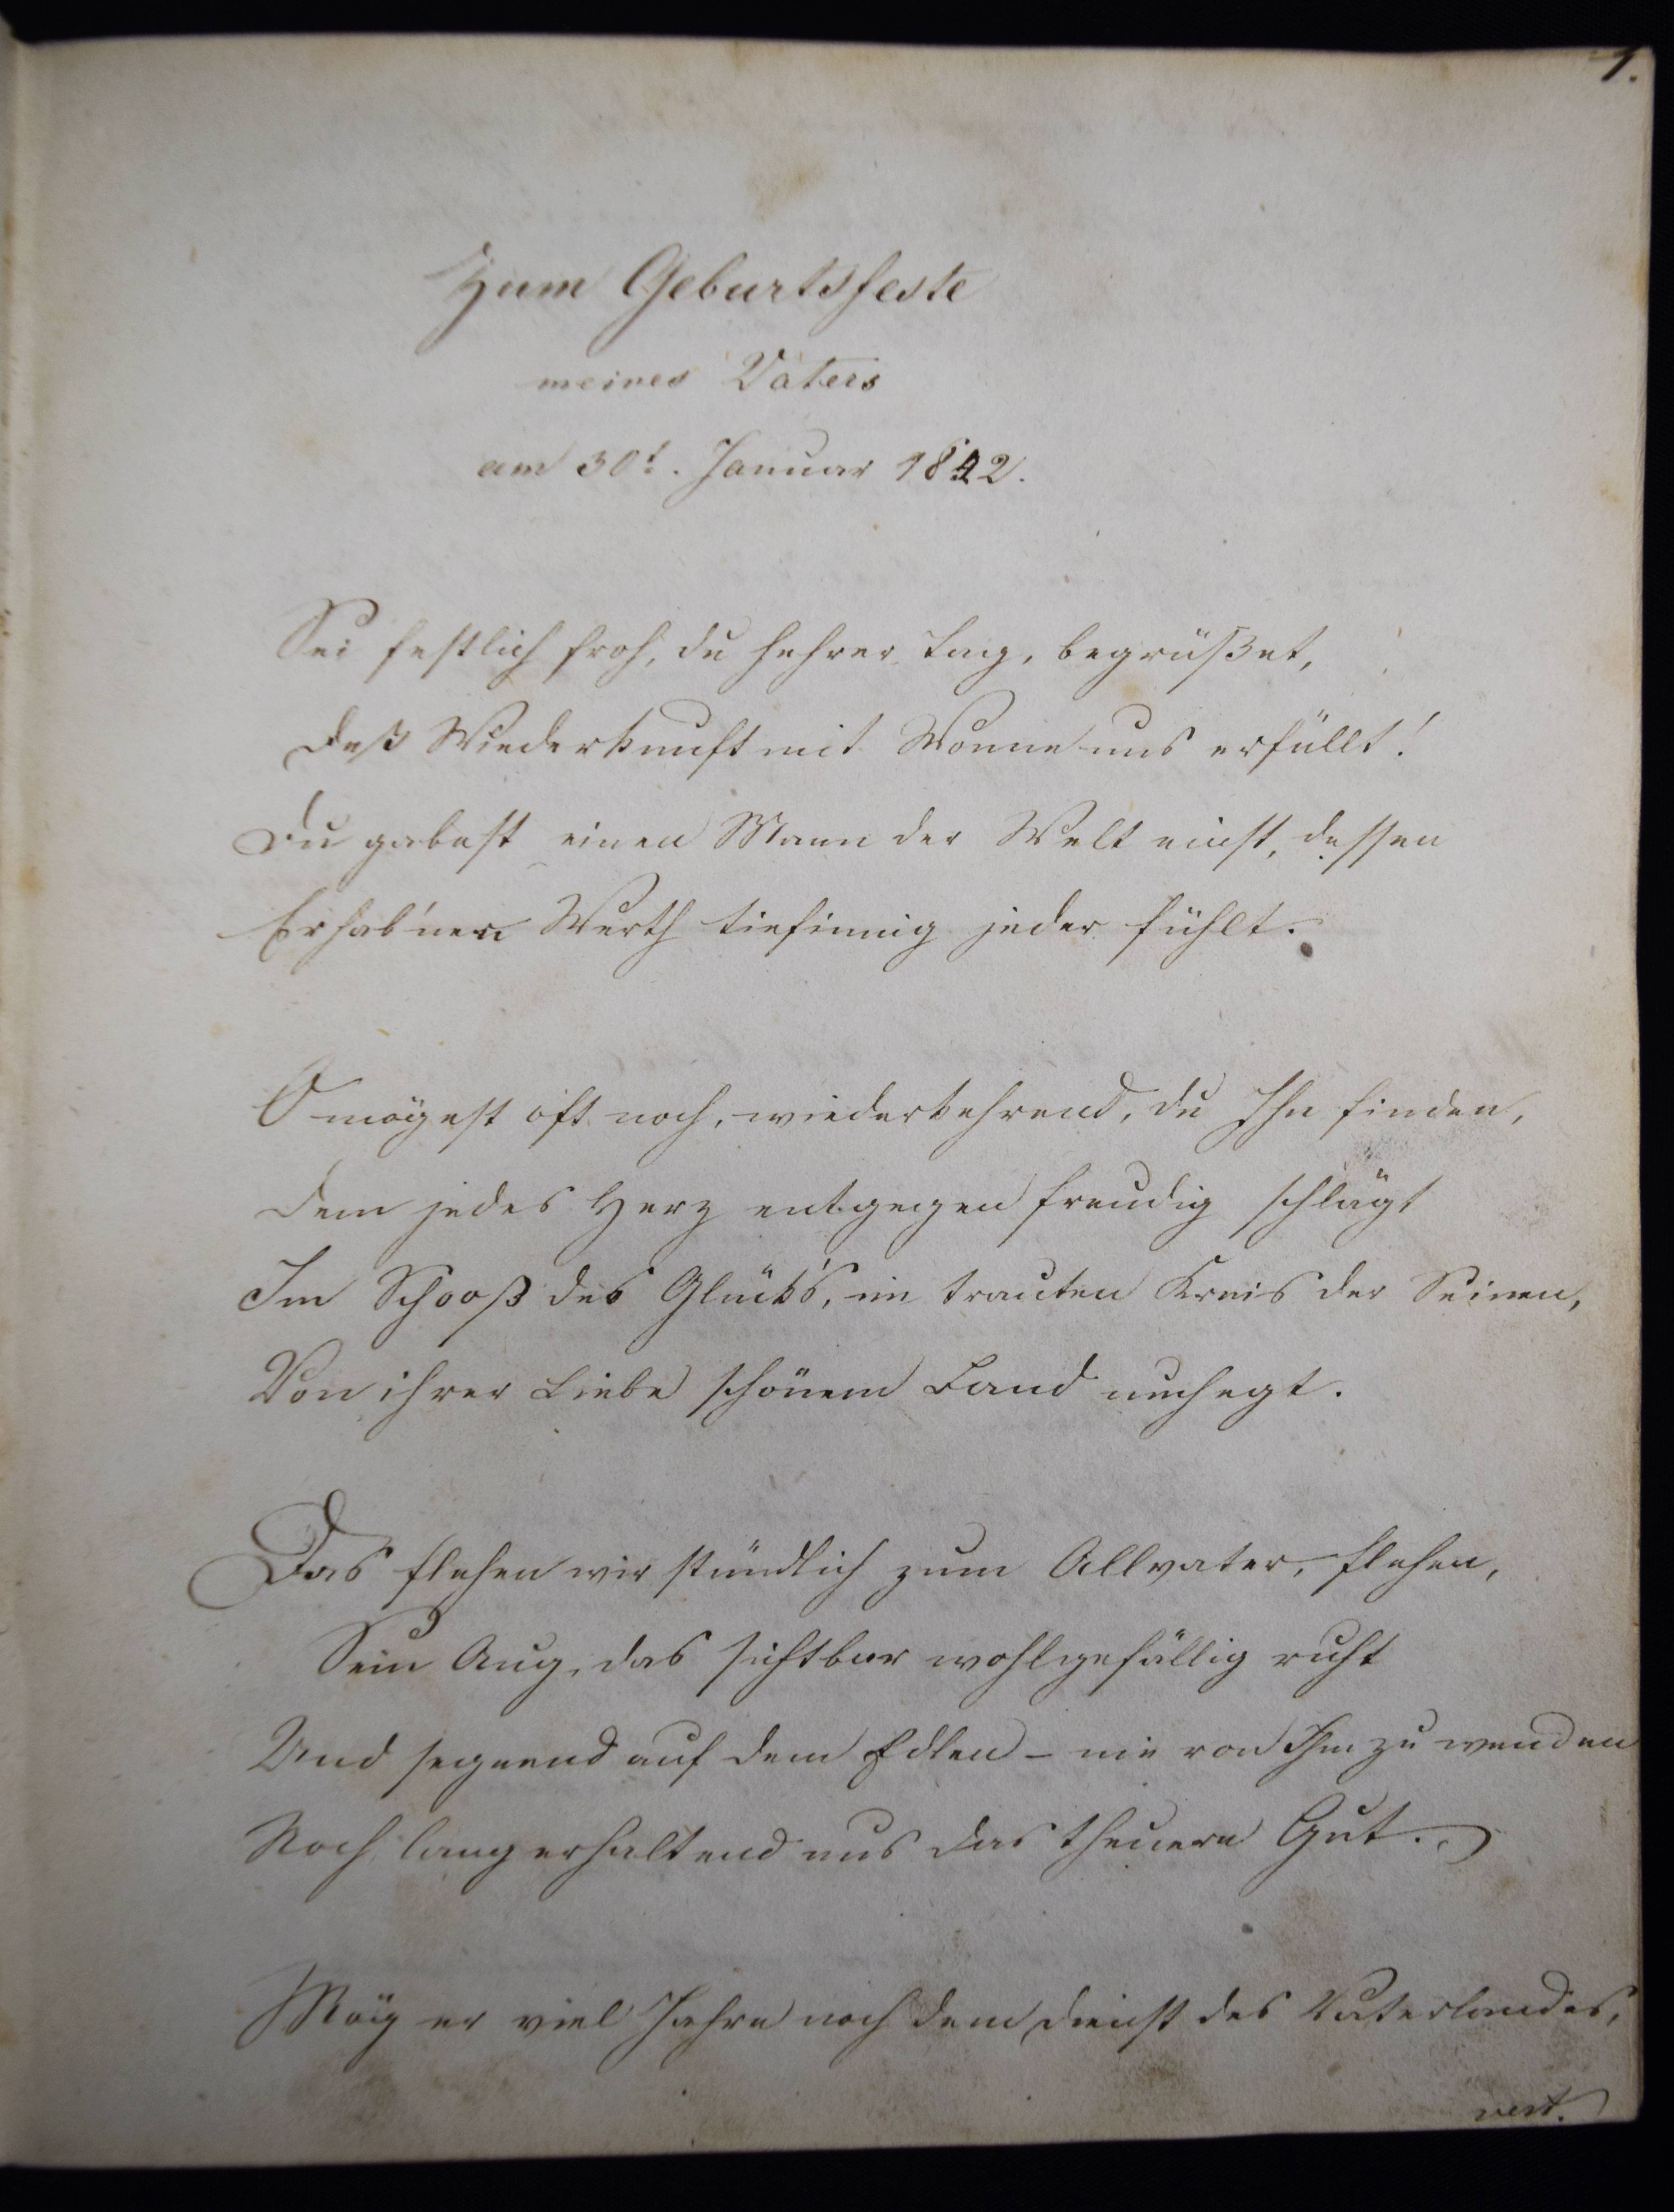 1.
Zum Geburtsfeste
meines Vaters
am 30t. Januar 1842.
Sei festlich froh, du hehrer Tag, begrüßet,
Deß Wiederkunft mit Wonne uns erfüllt!
Du gabest einen Mann der Welt einst, dessen
Erhab'nen Werth tiefinnig jeder fühlt.
O mögest oft noch, wiederkehrend, du Ihn finden,
Dem jedes Herz entgegen freudig schlägt
Im Schooß des Glück's, im trauten Kreis der Seinen,
Von ihrer Liebe schönem Band umhegt.
Das flehen wir stündlich zum Allvater, flehen,
Sein Aug, das sichtbar wohlgefällig ruht
Und segnend auf dem Edlen – nie von Ihm zu wenden
Noch lang erhaltend uns das theure Gut.
Mög er viel Jahre noch dem Dienst des Vaterlandes,
vert.